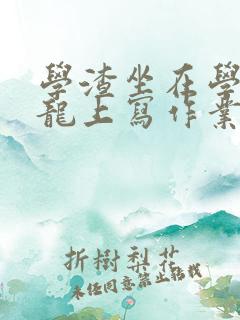 學渣坐在學
龍上寫作業
折樹梨花
未经同意禁止转载